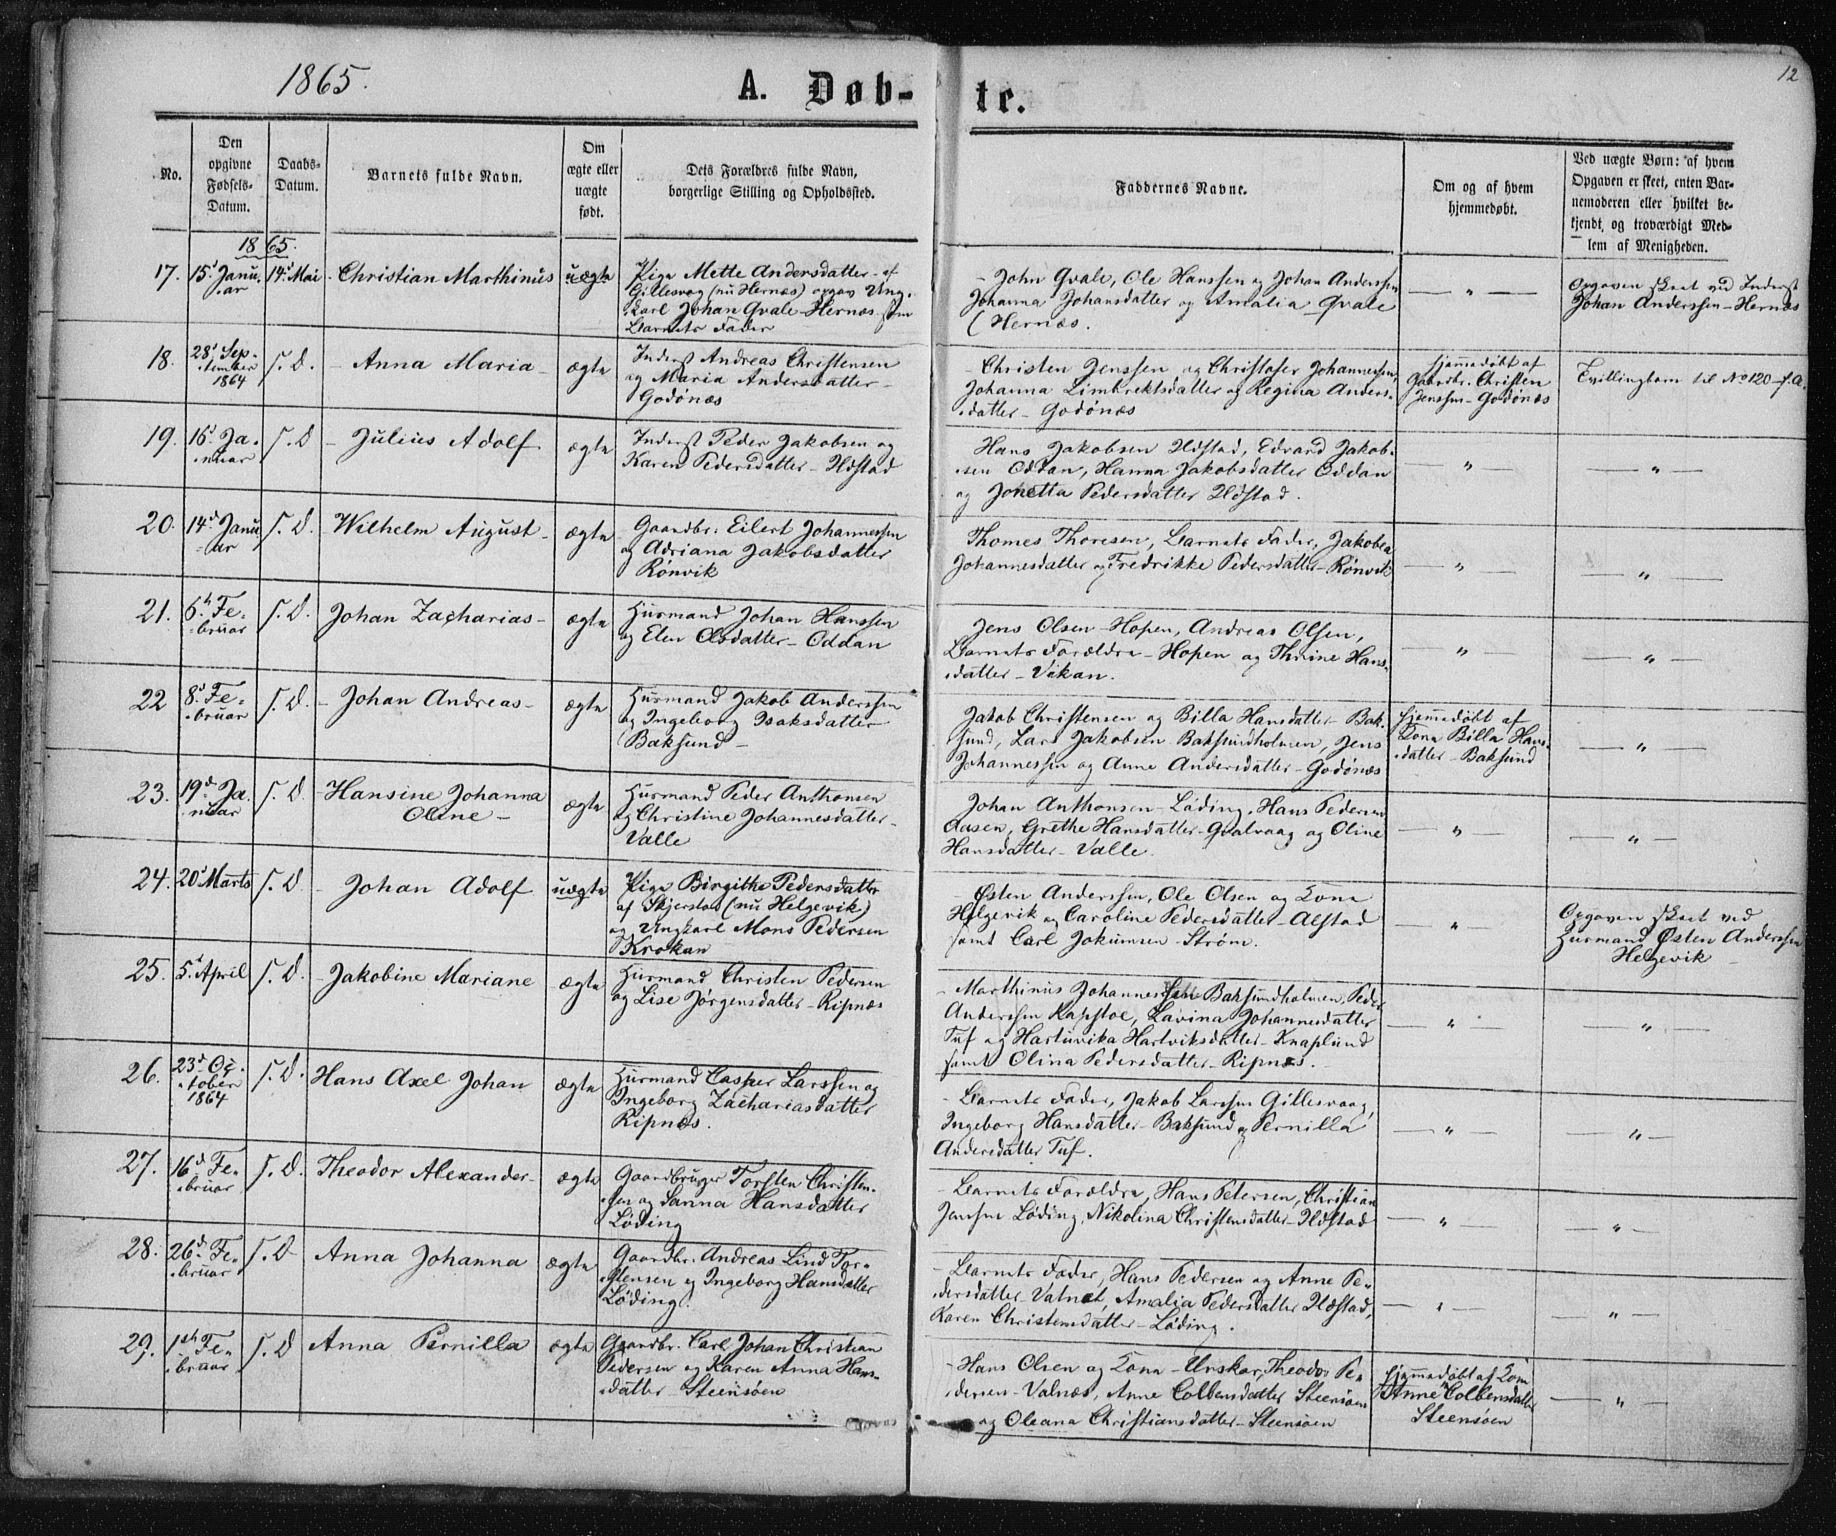 1865.
A. Døb-
te.
12
No.
Den
opgivne
Fødsels-
Datum.
Daabs-
Datum.
Barnets fulde Navn.
Om
ægte eller
uægte
født.
Dets Forældres fulde Navn,
borgerlige Stilling og Opholdssted.
Faddernes Navne.
Om og af hvem
hjemmedøbt.
Ved uægte Børn: af hvem
Opgaven er skeet, enten Bar-
nemoderen eller hvilket be-
kjendt og troværdigt Med-
lem af Menigheden.
1865.
17.
15d Janu-
ar
14d Mai
Christian Marthinus
uægte
Pige Mette Andersdatter af
Gillesvog (nu Hernæs) opgav Ung-
karl Johan Qvale-Hernæs som
Barnets Fader
John Qvale, Ole Hanssen og Johan Anderssen
Johanna Johansdatter og Amalia Qvale
(Hernæs.
— " —
Opgaven skeet ved Inderst
Johan Anderssen-Hernæs
18.
28d Sep-
tember
1864
s. D.
Anna Maria
ægte
Inderst Andreas Christensen
og Maria Andersdatter-
Godønæs
Christen Jenssen og Christofer Johannessen,
Johanna Limbrektsdatter og Regina Anders-
datter-Godønæs
hjemmedøbt af
Gaardbr. Christen
Jenssen-Godønæs
Tvillingbarn til No 120 f. A.
19.
16d Ja-
nuar
s. D
Julius Adolf
ægte
Inderst Peder Jakobsen og
Karen Pedersdatter-Ildstad
Hans Jakobsen Ildstad, Edvard Jakob-
sen Oddan, Hanna Jakobsdatter Oddan
og Jonetta Pedersdatter Ildstad.
— " —
— " —
20.
14d Janu-
ar
s. D.
Wilhelm August
ægte
Gaardbr. Eilert Johannessen
og Adriana Jakobsdatter
Rønvik
Thomes Thoresen, Barnets Fader, Jakobea
Johannesdatter og Fredrikke Pedersdatter-Rønvik
— " —
— " —
21.
6th Fe-
bruar
s. D.
Johan Zacharias
ægte
Huusmand Johan Hanssen
og Elen Olsdatter-Oddan
Jens Olsen-Hopen, Andreas Olsen,
Barnets Forældre-Hopen og Thrine Hans-
datter-Vikan.
— " —
— " —
22
8d Fe-
bruar
s. D.
Johan Andreas
ægte
Huusmand Jakob Anderssen
og Ingeborg Isaksdatter
Baksund
Jakob Christensen og Billa Hansdatter Bak-
sund, Lars Jakobsen Baksundholmen, Jens
Johannessen og Anne Andersdatter-Godønæs
hjemmedøbt af
Kona Billa Hans-
datter-Baksund
— " —
23.
19d Ja-
nuar
s. D.
Hansine Johanna
Oline
ægte
Huusmand Peder Anthonsen
og Christine Johannesdatter-
Valle
Johan Anthonsen-Løding, Hans Pedersen
Aasen, Grethe Hansdatter-Qvalvaag og Oline
Hansdatter-Valle.
— " —
— " —
24.
20d Marts
s. D.
Johan Adolf
uægte
Pige Birgithe Pedersdatter
af Skjerstad (nu Helgevik)
og Ungkarl Mons Pedersen
Krokan
Østen Anderssen, Ole Olsen og Kona
Helgevik og Caroline Pedersdatter-Alstad
samt Carl Jokumsen-Strøm.
— " —
Opgaven skeet ved
Huusmand Østen Anderssen
Helgevik
25.
5d April
s. D.
Jakobine Mariane
ægte
Huusmand Christen Pedersen
og Lise Jørgensdatter-Ripnæs
Marthinus Johannessen Baksundholmen, Peder
Anderssen Kapstoe, Lavina Johannesdatter
Tuf og Hartuvika Hartviksdatter-Knaplund
samt Olina Pedersdatter-Ripnæs.
— " —
— " —
26.
23d Oc-
tober
1864
s. D.
Hans Axel Johan
ægte
Huusmand Casper Larssen og
Ingeborg Zachariasdatter
Ripnæs.
Barnets Fader, Jakob Larssen Gillesvaag,
Ingeborg Hansdatter-Baksund og Pernilla
Andersdatter Tuf.
— " —
— " —
27.
16d Fe-
bruar
s. D.
Theodor Alexander
ægte
Gaardbruger Torsten Christen-
sen og Sanna Hansdatter
Løding
Barnets Forældre, Hans Petersen, Christian
Jenssen Løding, Nikolina Christensdatter-Ildstad
— " —
— " —
28.
26d Fe-
bruar
s. D
Anna Johanna
ægte
Gaardbr. Andreas Lind Tor-
stensen og Ingeborg Hansdatter
Løding.
Barnets Fader, Hans Pedersen og Anne Pe-
dersdatter-Vatnet, Amalia Pedersdatter Ildstad,
Karen Christensdatter-Løding.
— " —
— " —
29.
1sth Fe-
bruar
s. D
Anna Pernilla
ægte
Gaardbr. Carl Johan Christian
Pedersen og Karen Anna Hans-
datter Steensøen
Hans Olsen og Kona-Unskar, Theodor Pe-
dersen-Valnæs, Anne Colbensdatter Steensøen
og Oleana Christiansdatter-Steensøen
hjemmedøbt af Kona
Anne Colbensdatter
Steensøen
— " —